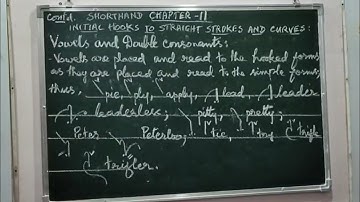 Contd. SHORTHAND CHAPTER-11
INITIAL HOOKS TO STRAIGHT STROKES AND CURVES:
Vowels and Double consonants:
- Vowels are placed and read to the hooked forms
as they are placed and read to the simple forms,
thus, pie, ply, apply, load, leader
leaderless; pity, pretty.
Peter Peterloo; tie, try
trifler.